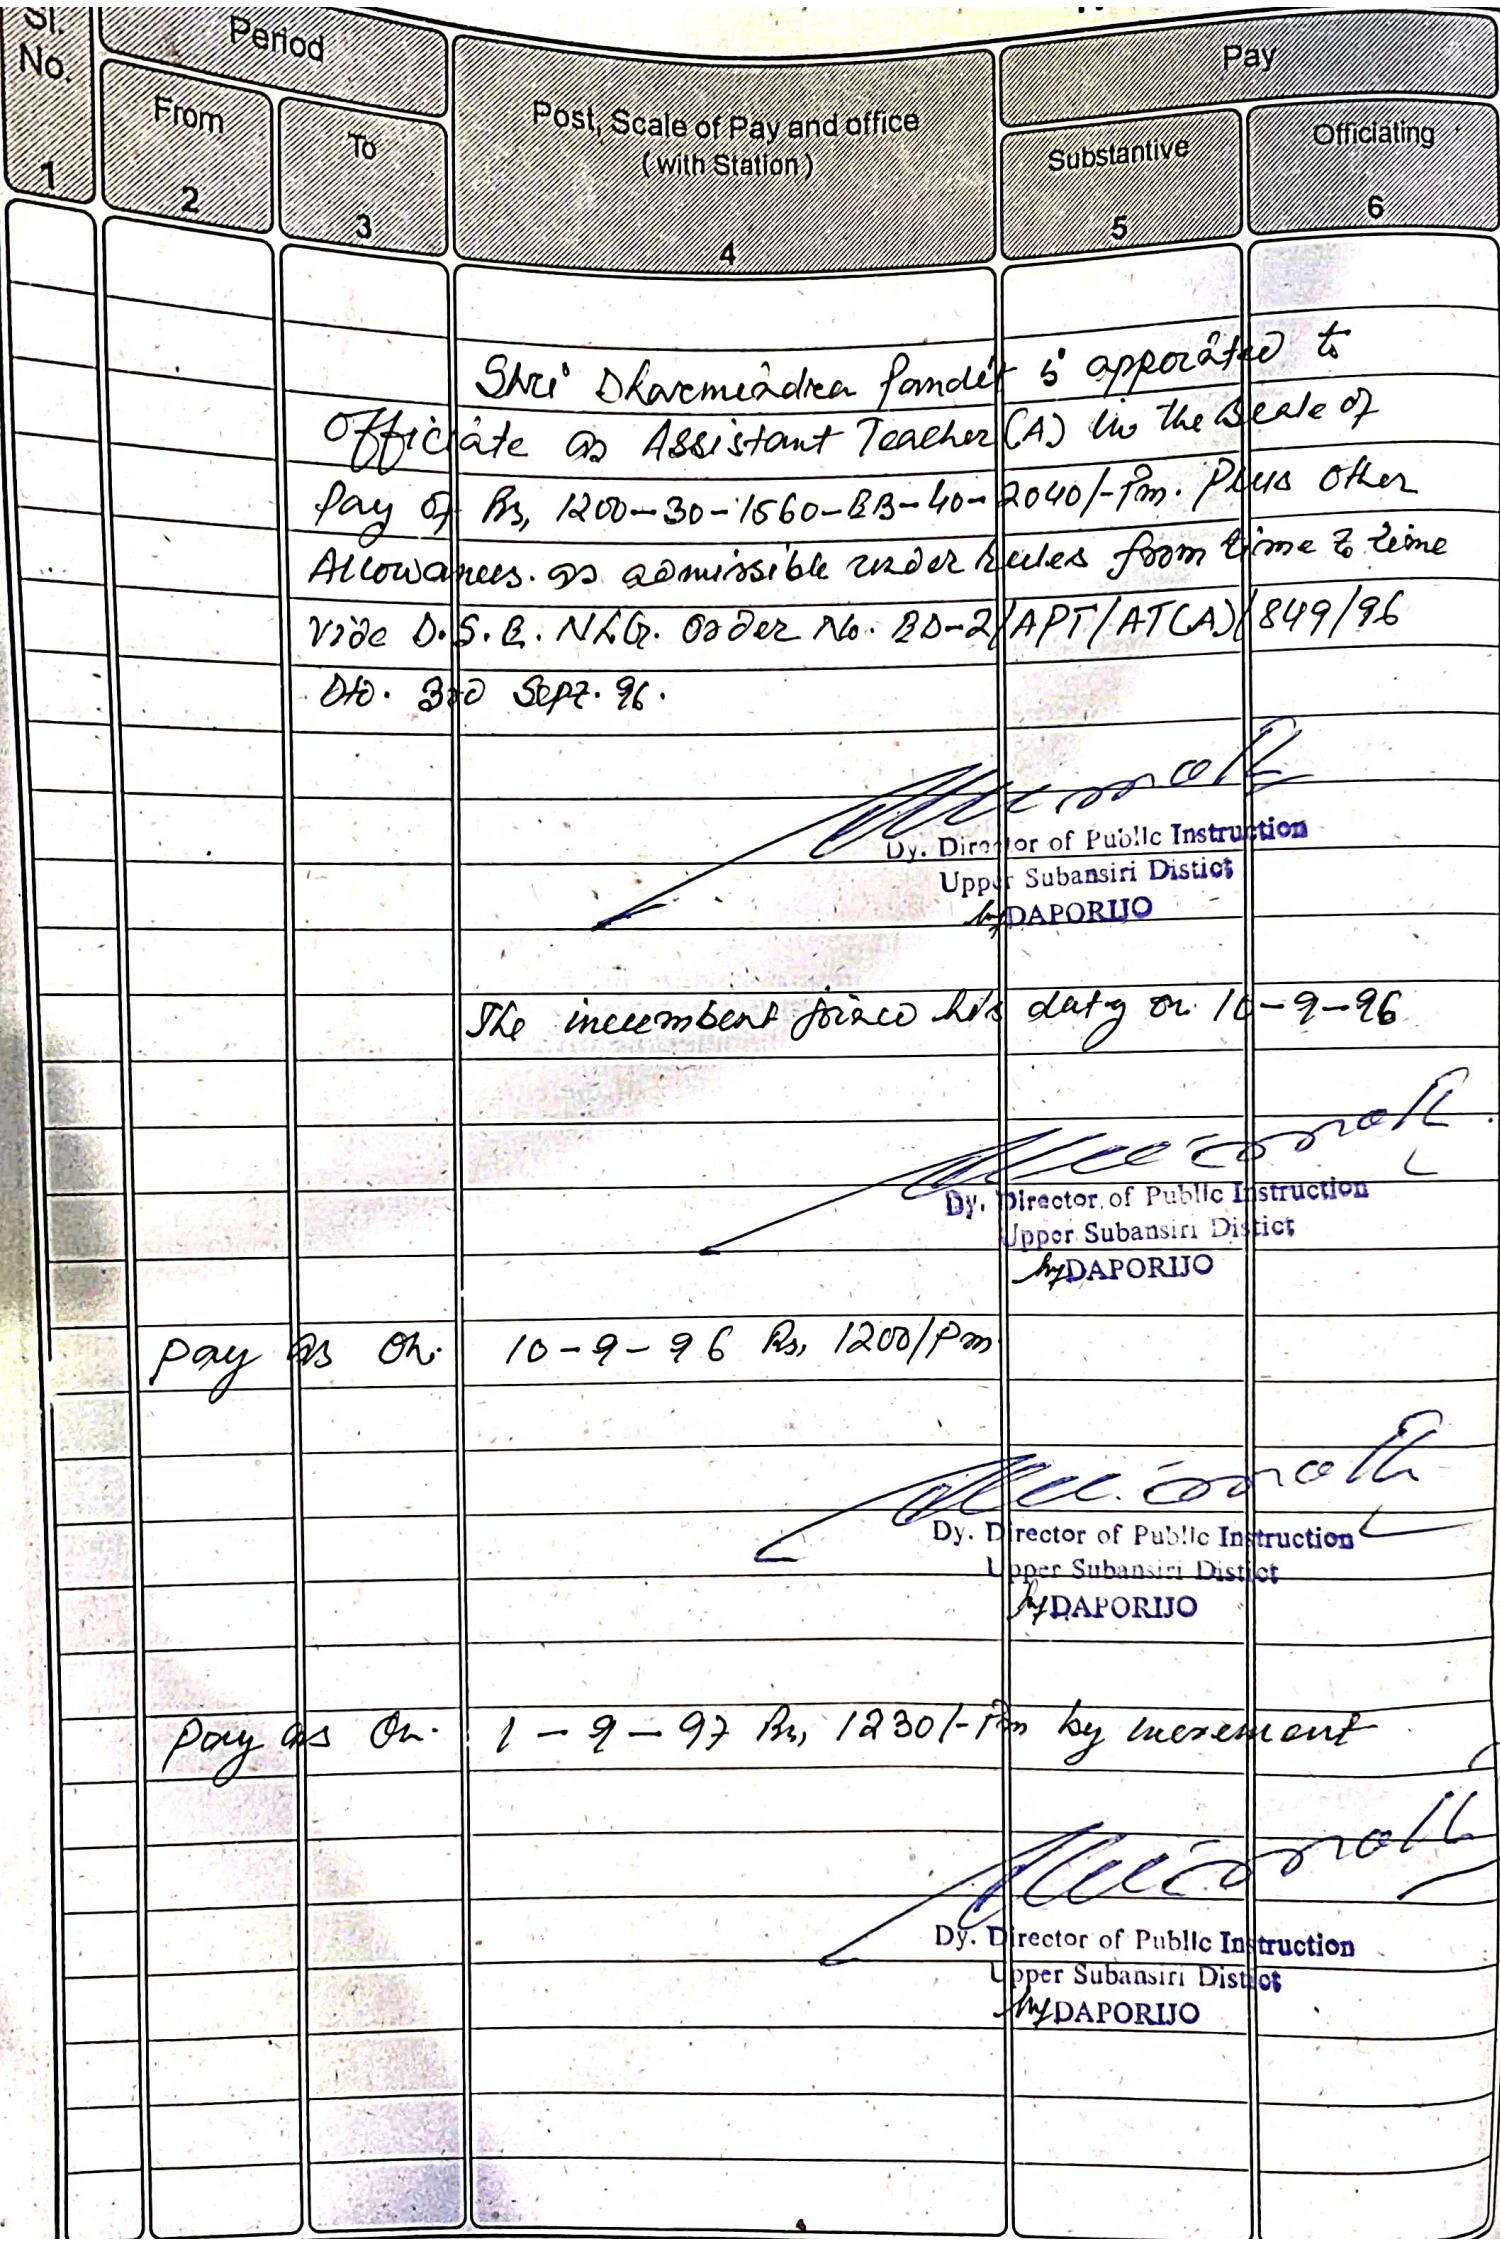 Sl. No.
Period
Post, Scale of Pay and office
(with Station)
Pay
From
To
Substantive
Officiating
1
2
3
4
5
6
Shri Dharmendra Pandit is appointed to
Officiate as Assistant Teacher (A) in the Scale of
Pay of Rs, 1200-30-1560-EB-40-2040/-Pm. Plus other
Allowances. as admissible under rules from time to time
vide D.S.E. NLG. Order No. ED-2/APT/AT(A)/849/96
Dtd. 3rd Sept. 96.
Dy. Director of Public Instruction
Upper Subansiri Distict
DAPORIJO
The incumbent joined his duty on 10-9-96
Dy. Director of Public Instruction
Upper Subansiri Distict
DAPORIJO
Pay as on. 10-9-96 Rs, 1200/Pm
Dy. Director of Public Instruction
Upper Subansiri Distict
DAPORIJO
Pay as on. 1-9-97 Rs, 1230/-Pm by increment
Dy. Director of Public Instruction
Upper Subansiri Distict
DAPORIJO